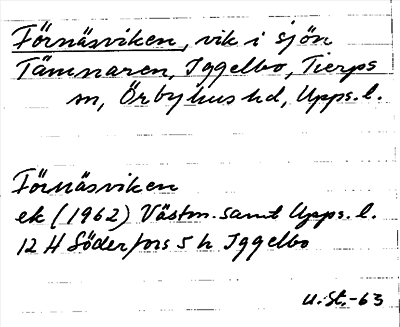 Förnäsviken, vik i sjön
Tämnaren, Iggelbo, Tierps
sn, Örbyhus hd, Upps. l.
Förnäsviken
ek (1962) Västm. samt Upps. l.
12 H Söderfors 5 h Iggelbo
U. St.-63